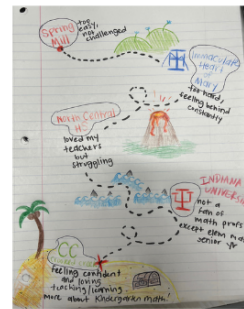 Spring
Mill
too
easy,
not
challenged
Immaculate
Heart of
Mary
too hard,
feeling behind
constantly
North Central
HS
loved my
teachers
but
struggling
INDIANA
UNIVERS
not a
fan of
math profs
except elem m
senior yr
CC
feeling confident
and loving
teaching/learning
more about Kindergarten math!